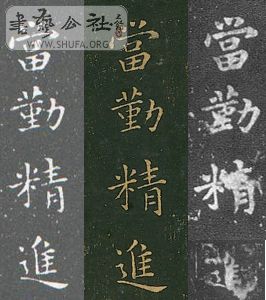 書藝公社
WWW.SHUFA.ORG
當勤精進
當勤精進
當勤精進